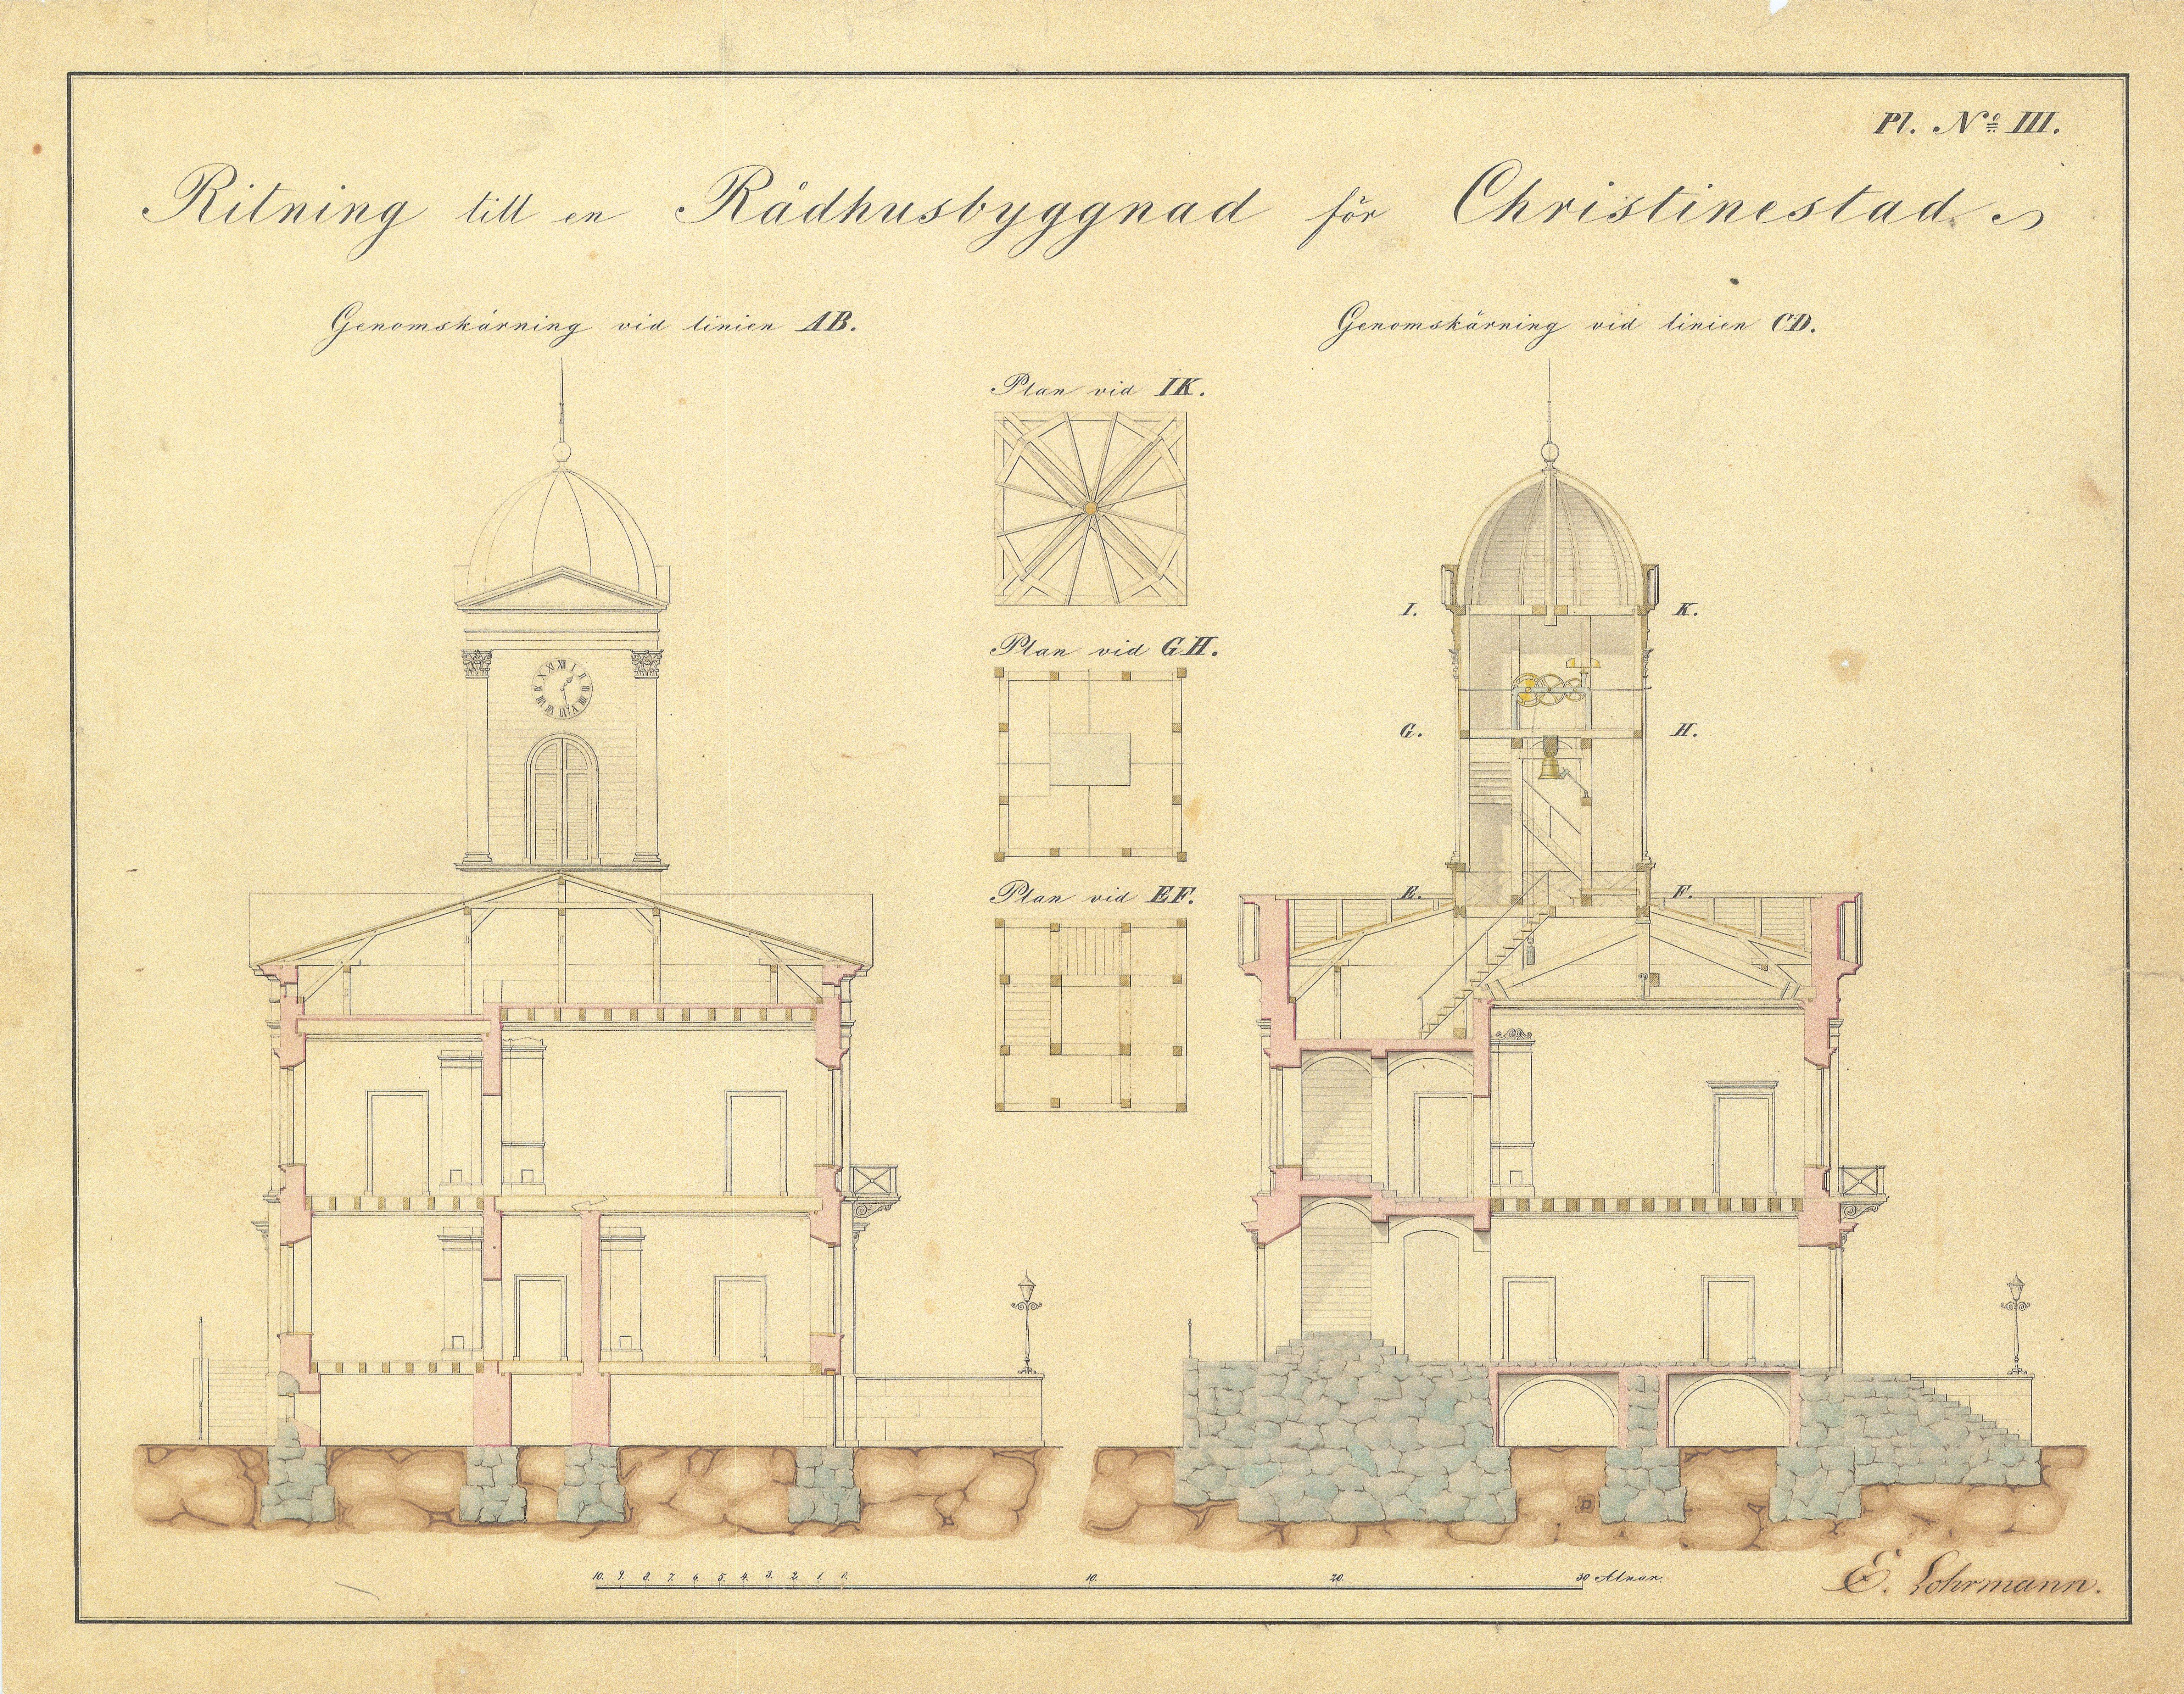 Pl. No III.
Ritning till en Rådhusbyggnad för Christinestad
Genomskärning vid linien AB.
Genomskärning vid linien CD.
Plan vid IK.
Plan vid GH.
Plan vid EF.
I. K.
G. H.
E. F.
XII I II III IIII V VI VII VIII IX X XI
10. 9. 8. 7. 6. 5. 4. 3. 2. 1. 0. 10. 20. 30 Alnar.
E. Lohrmann.